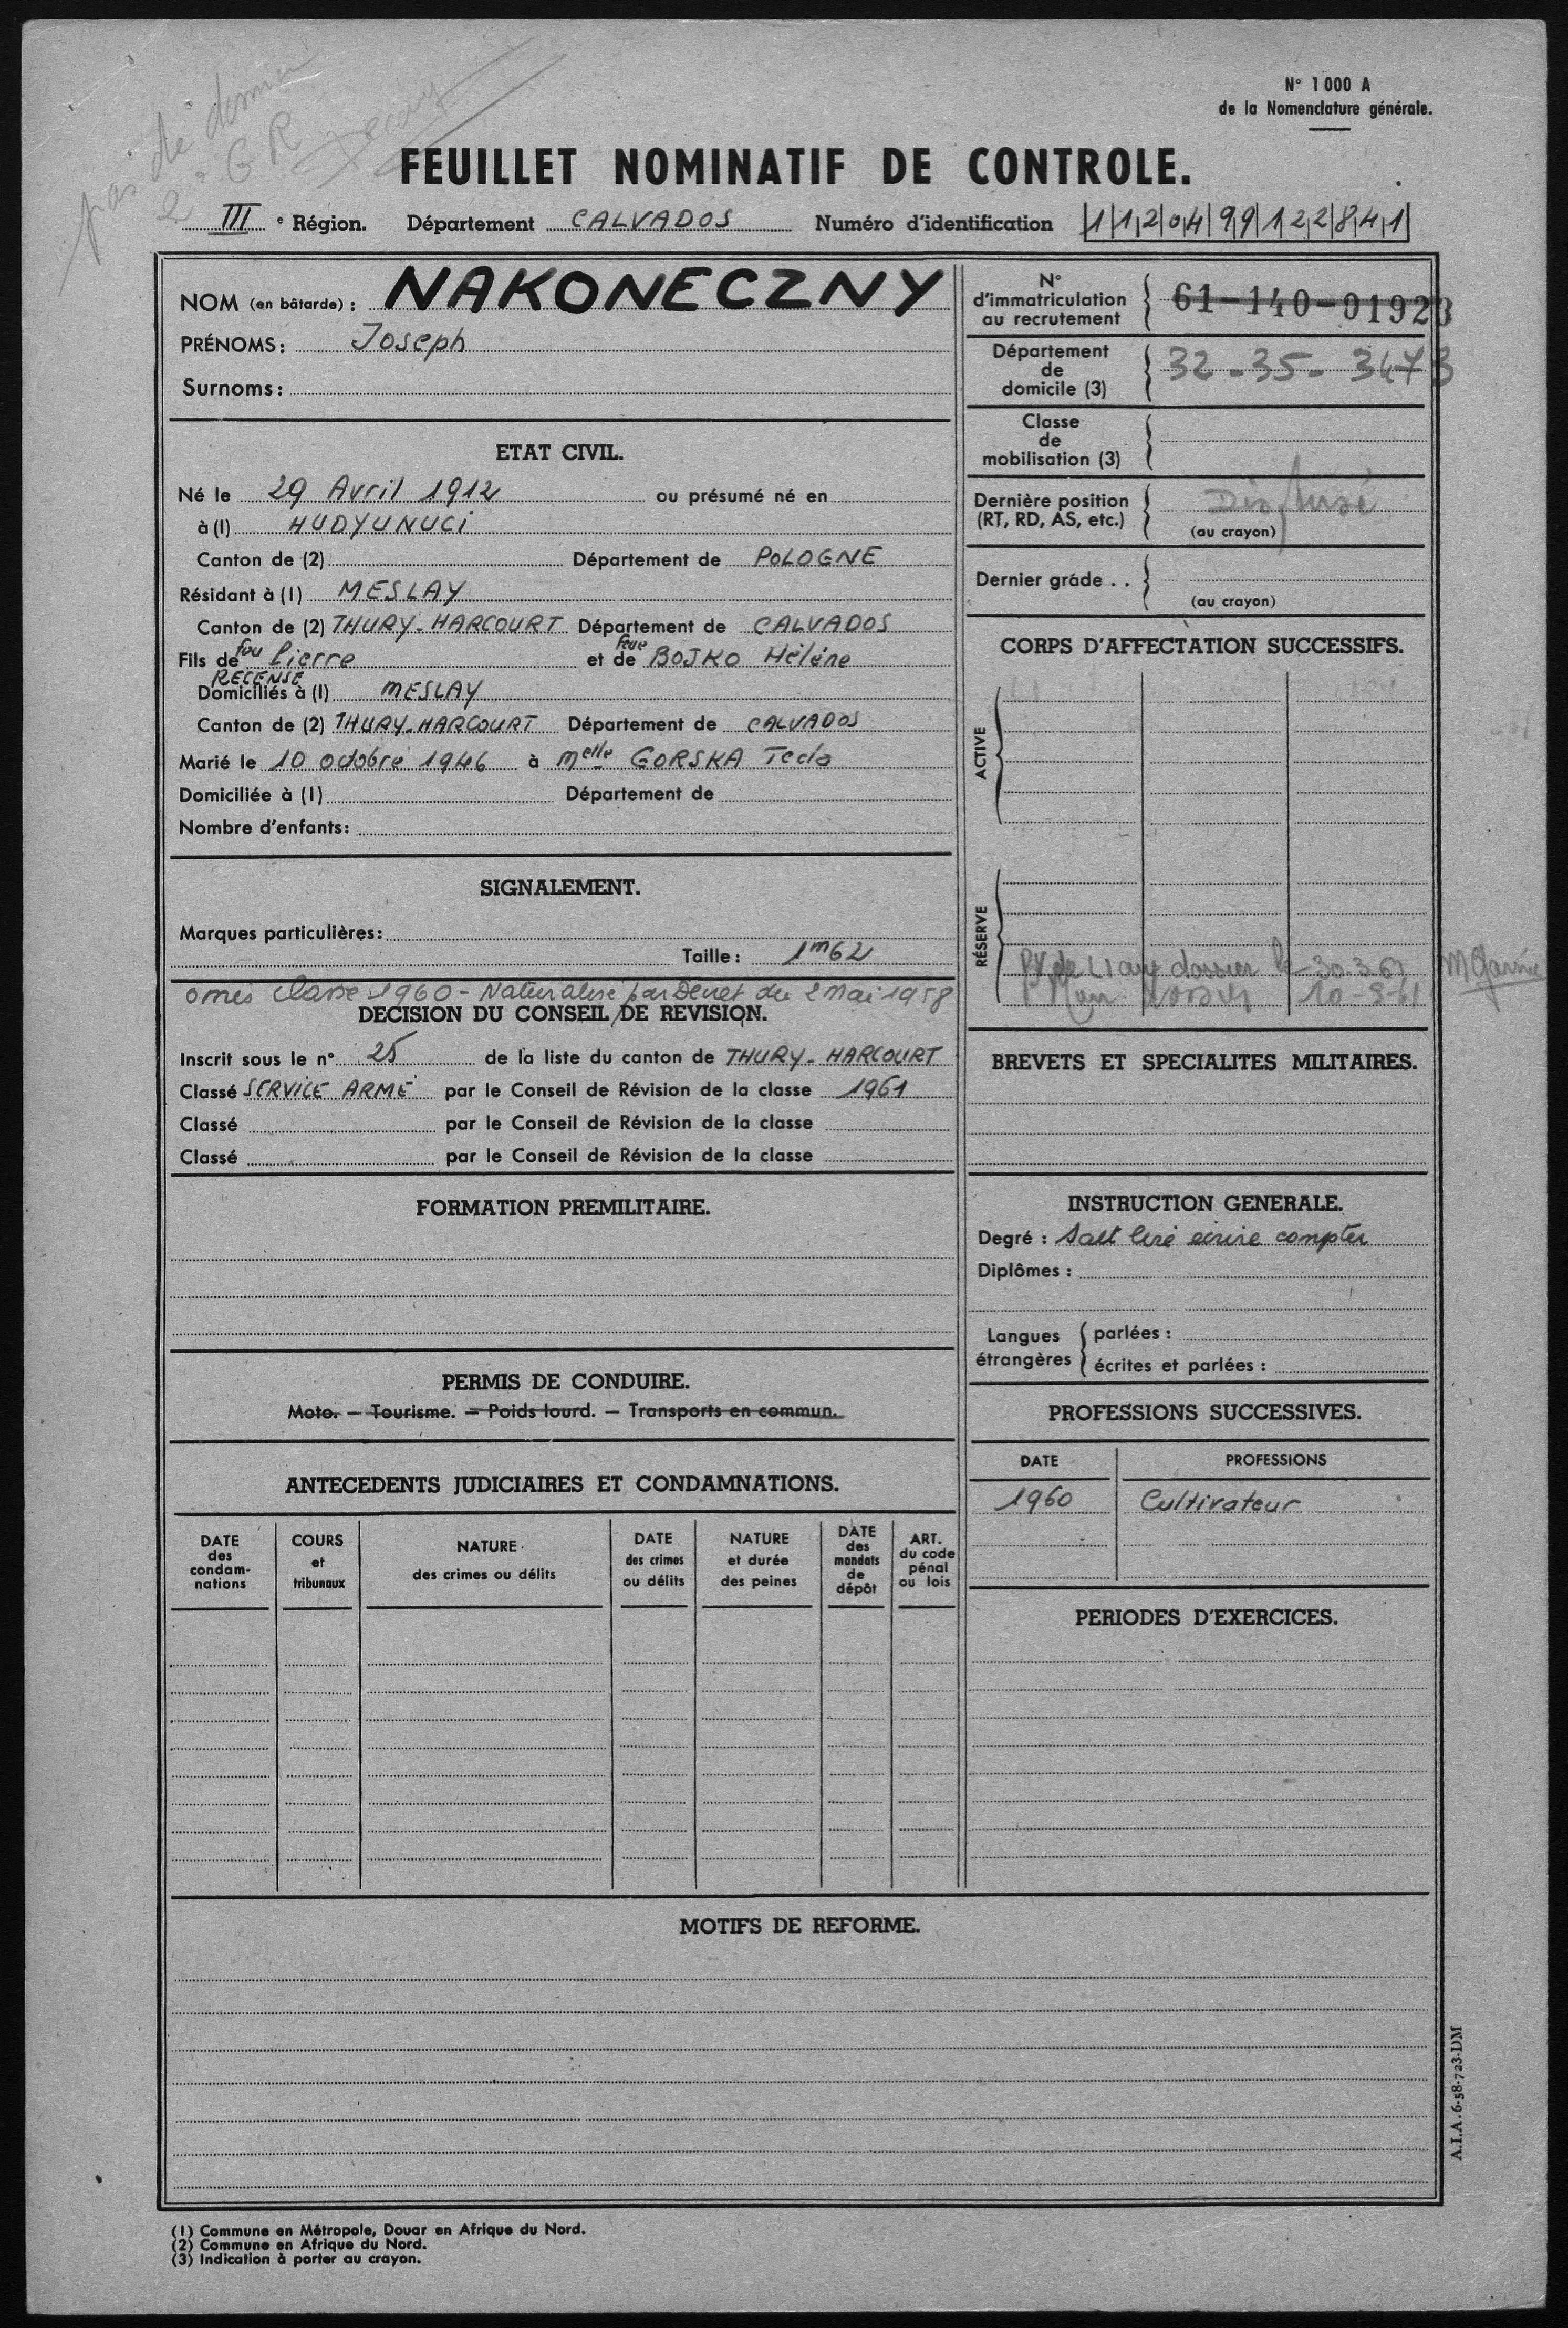 N° 1000 A
de la Nomenclature générale.
pas de
2e GR
FEUILLET NOMINATIF DE CONTROLE.
III e Région. Département CALVADOS Numéro d'identification 1120499122841
NOM (en bâtarde) : NAKONECZNY
PRÉNOMS : Joseph
Surnoms :
ETAT CIVIL.
Né le 29 Avril 1912 ou présumé né en
à (1) HUDYUNUCI
Canton de (2) Département de POLOGNE
Résidant à (1) MESLAY
Canton de (2) THURY-HARCOURT Département de CALVADOS
Fils de feu Pierre et de feue BOJKO Hélène
RECENSÉ
Domiciliés à (1) MESLAY
Canton de (2) THURY-HARCOURT Département de CALVADOS
Marié le 10 octobre 1946 à Melle GORSKA Tecla
Domiciliée à (1) Département de
Nombre d'enfants :
SIGNALEMENT.
Marques particulières :
Taille : 1m62
omis classe 1960 - Naturalisé par Décret du 2 mai 1958
DECISION DU CONSEIL DE REVISION.
Inscrit sous le n° 25 de la liste du canton de THURY-HARCOURT
Classé SERVICE ARMÉ par le Conseil de Révision de la classe 1961
Classé par le Conseil de Révision de la classe
Classé par le Conseil de Révision de la classe
FORMATION PREMILITAIRE.
PERMIS DE CONDUIRE.
Moto. — Tourisme. — Poids lourd. — Transports en commun.
ANTECEDENTS JUDICIAIRES ET CONDAMNATIONS.
DATE des condam-nations
COURS et tribunaux
NATURE des crimes ou délits
DATE des crimes ou délits
NATURE et durée des peines
DATE des mandats de dépôt
ART. du code pénal ou lois
N° d'immatriculation au recrutement 61-140-01923
Département de domicile (3) 32-35-3473
Classe de mobilisation (3)
Dernière position (RT, RD, AS, etc.) Dispensé
(au crayon)
Dernier grade . .
(au crayon)
CORPS D'AFFECTATION SUCCESSIFS.
ACTIVE
RÉSERVE
dossier le 30.3.61
10-3-61
BREVETS ET SPECIALITES MILITAIRES.
INSTRUCTION GENERALE.
Degré : Sait lire écrire compter
Diplômes :
Langues étrangères
parlées :
écrites et parlées :
PROFESSIONS SUCCESSIVES.
DATE PROFESSIONS
1960 Cultivateur
PERIODES D'EXERCICES.
MOTIFS DE REFORME.
A.I.A.6-58-723-DM
(1) Commune en Métropole, Douar en Afrique du Nord.
(2) Commune en Afrique du Nord.
(3) Indication à porter au crayon.